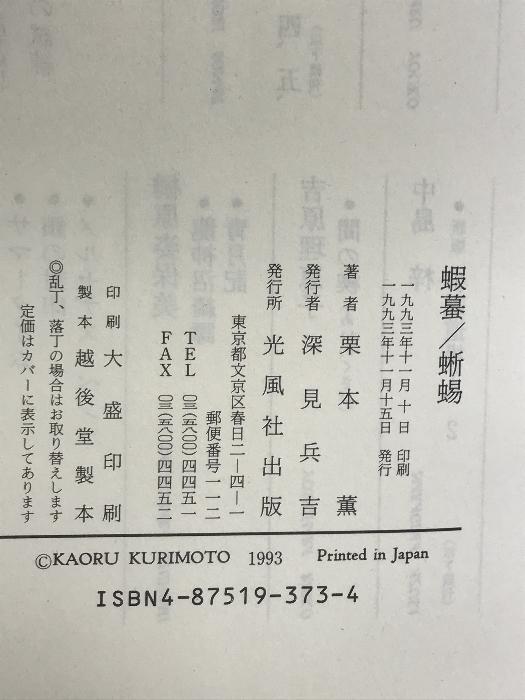 蝦蟇／蜥蜴
一九九三年十一月 十 日 印刷
一九九三年十一月十五日 発行
著者 栗本 薫
発行者 深見兵吉
発行所 光風社出版
東京都文京区春日二—四—一
郵便番号一一二
TEL 〇三(五八〇〇)四四五一
FAX 〇三(五八〇〇)四四五二
印刷 大盛印刷
製本 越後堂製本
◎乱丁、落丁の場合はお取り替えします
定価はカバーに表示してあります
©KAORU KURIMOTO 1993 Printed in Japan
ISBN4-87519-373-4